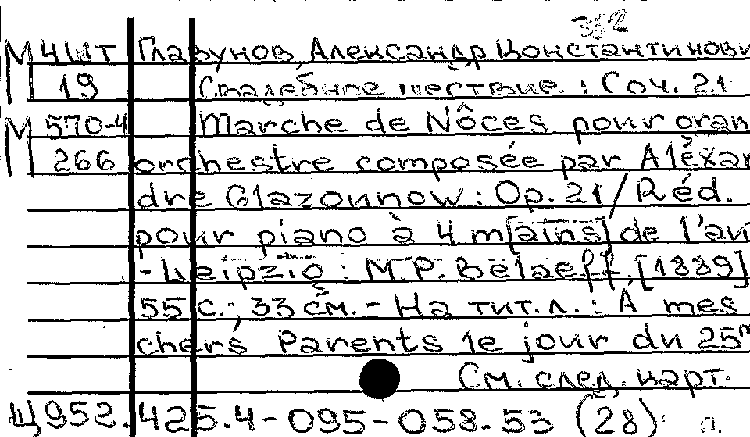 352
М 4ШТ Глазунов, Александр Константинови
19 Свадебное шествие : Соч. 21
М 570-4 Marche de Nôces pour gran
266 orchestre composée par Aléxan
dre Glazounow : Op. 21 / Réd.
pour piano à 4 m[ains] de l'au
- Leipzig : M.P. Belaeff, [1889]
55 с.; 33 см. - На тит. л. : À mes
chers Parents le jour du 25m
См. след. карт.
Ц952.425.4-095-058.53 (28)